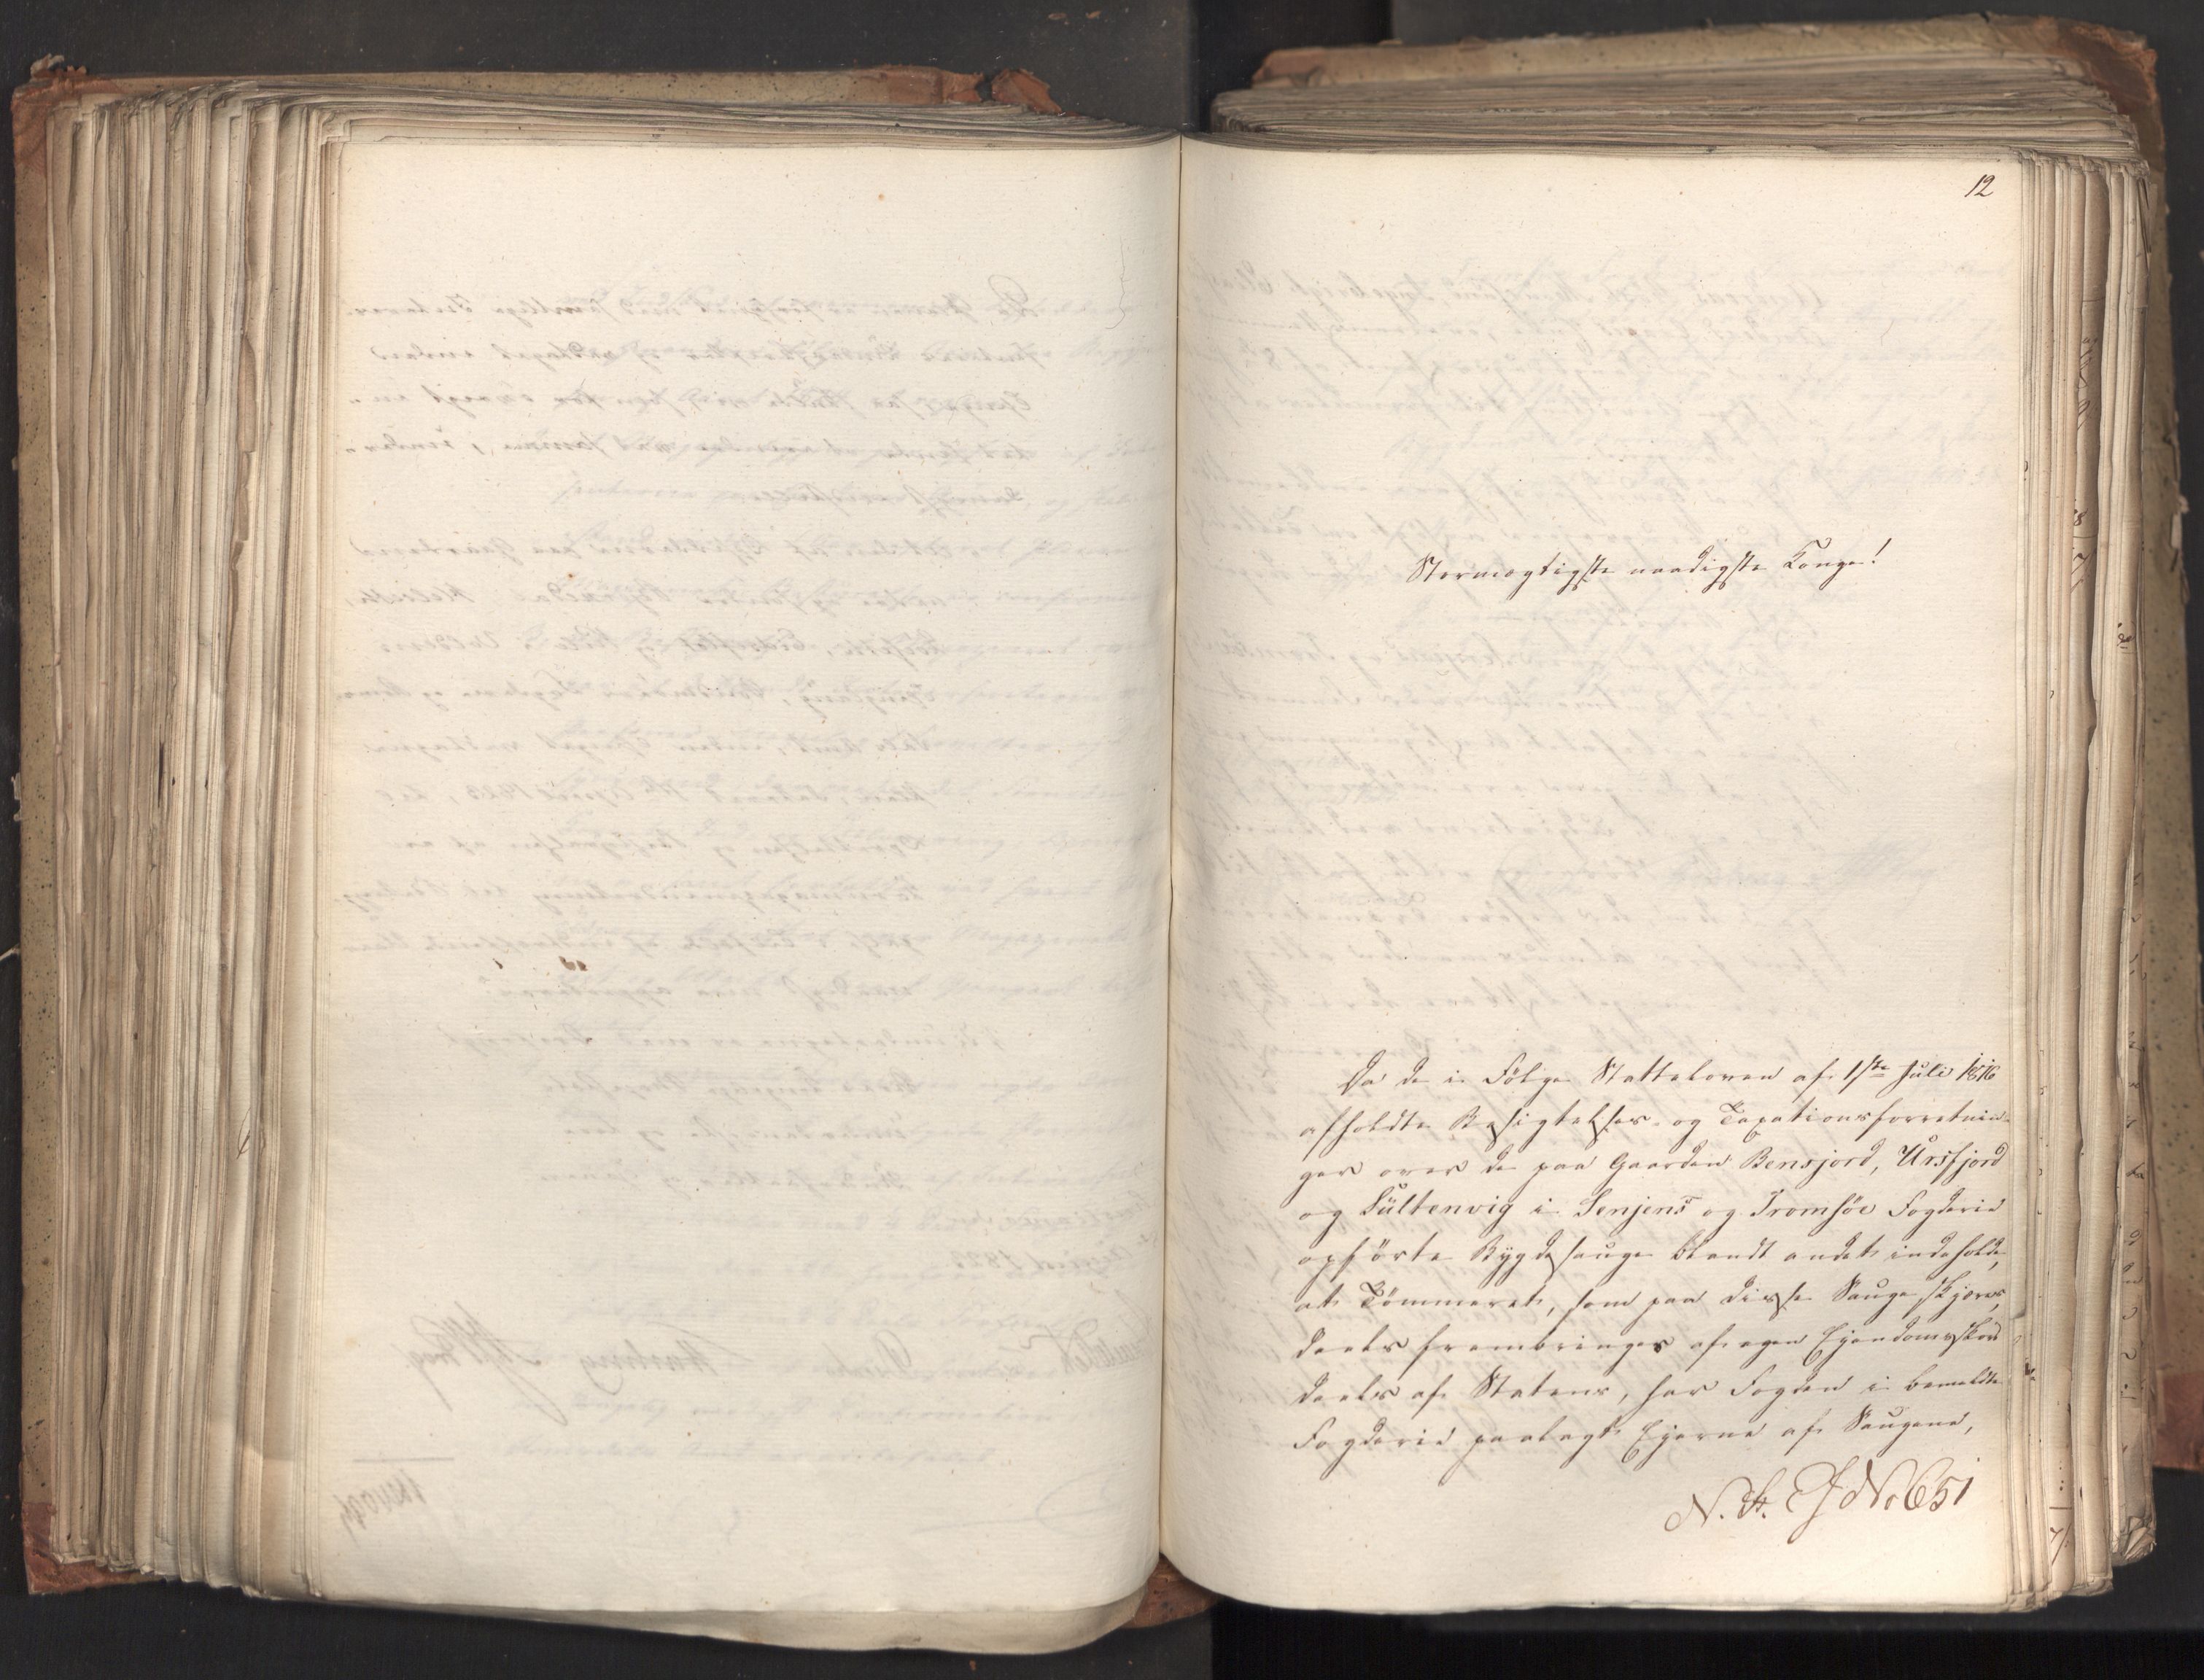 12
Stormægtigste naadigste Konge!
Da de i Følge Skatteloven af 1ste Juli 1816
afholdte Besigtelses- og Taxationsforretnin-
ger over de paa Gaarden Bensjord, Ursfjord
og Sültenvig i Senjens og Tromsöe Fogderie
opförte Bygdesauge blandt andet indeholde,
at Tömmeret, som paa disse Sauge skjæres,
deels frembringes af egen Ejendomsskov
deels af Statens, har Fogden i bemeldte
Fogderie paalagt Ejerne af Saugene,
N. A. J No 651